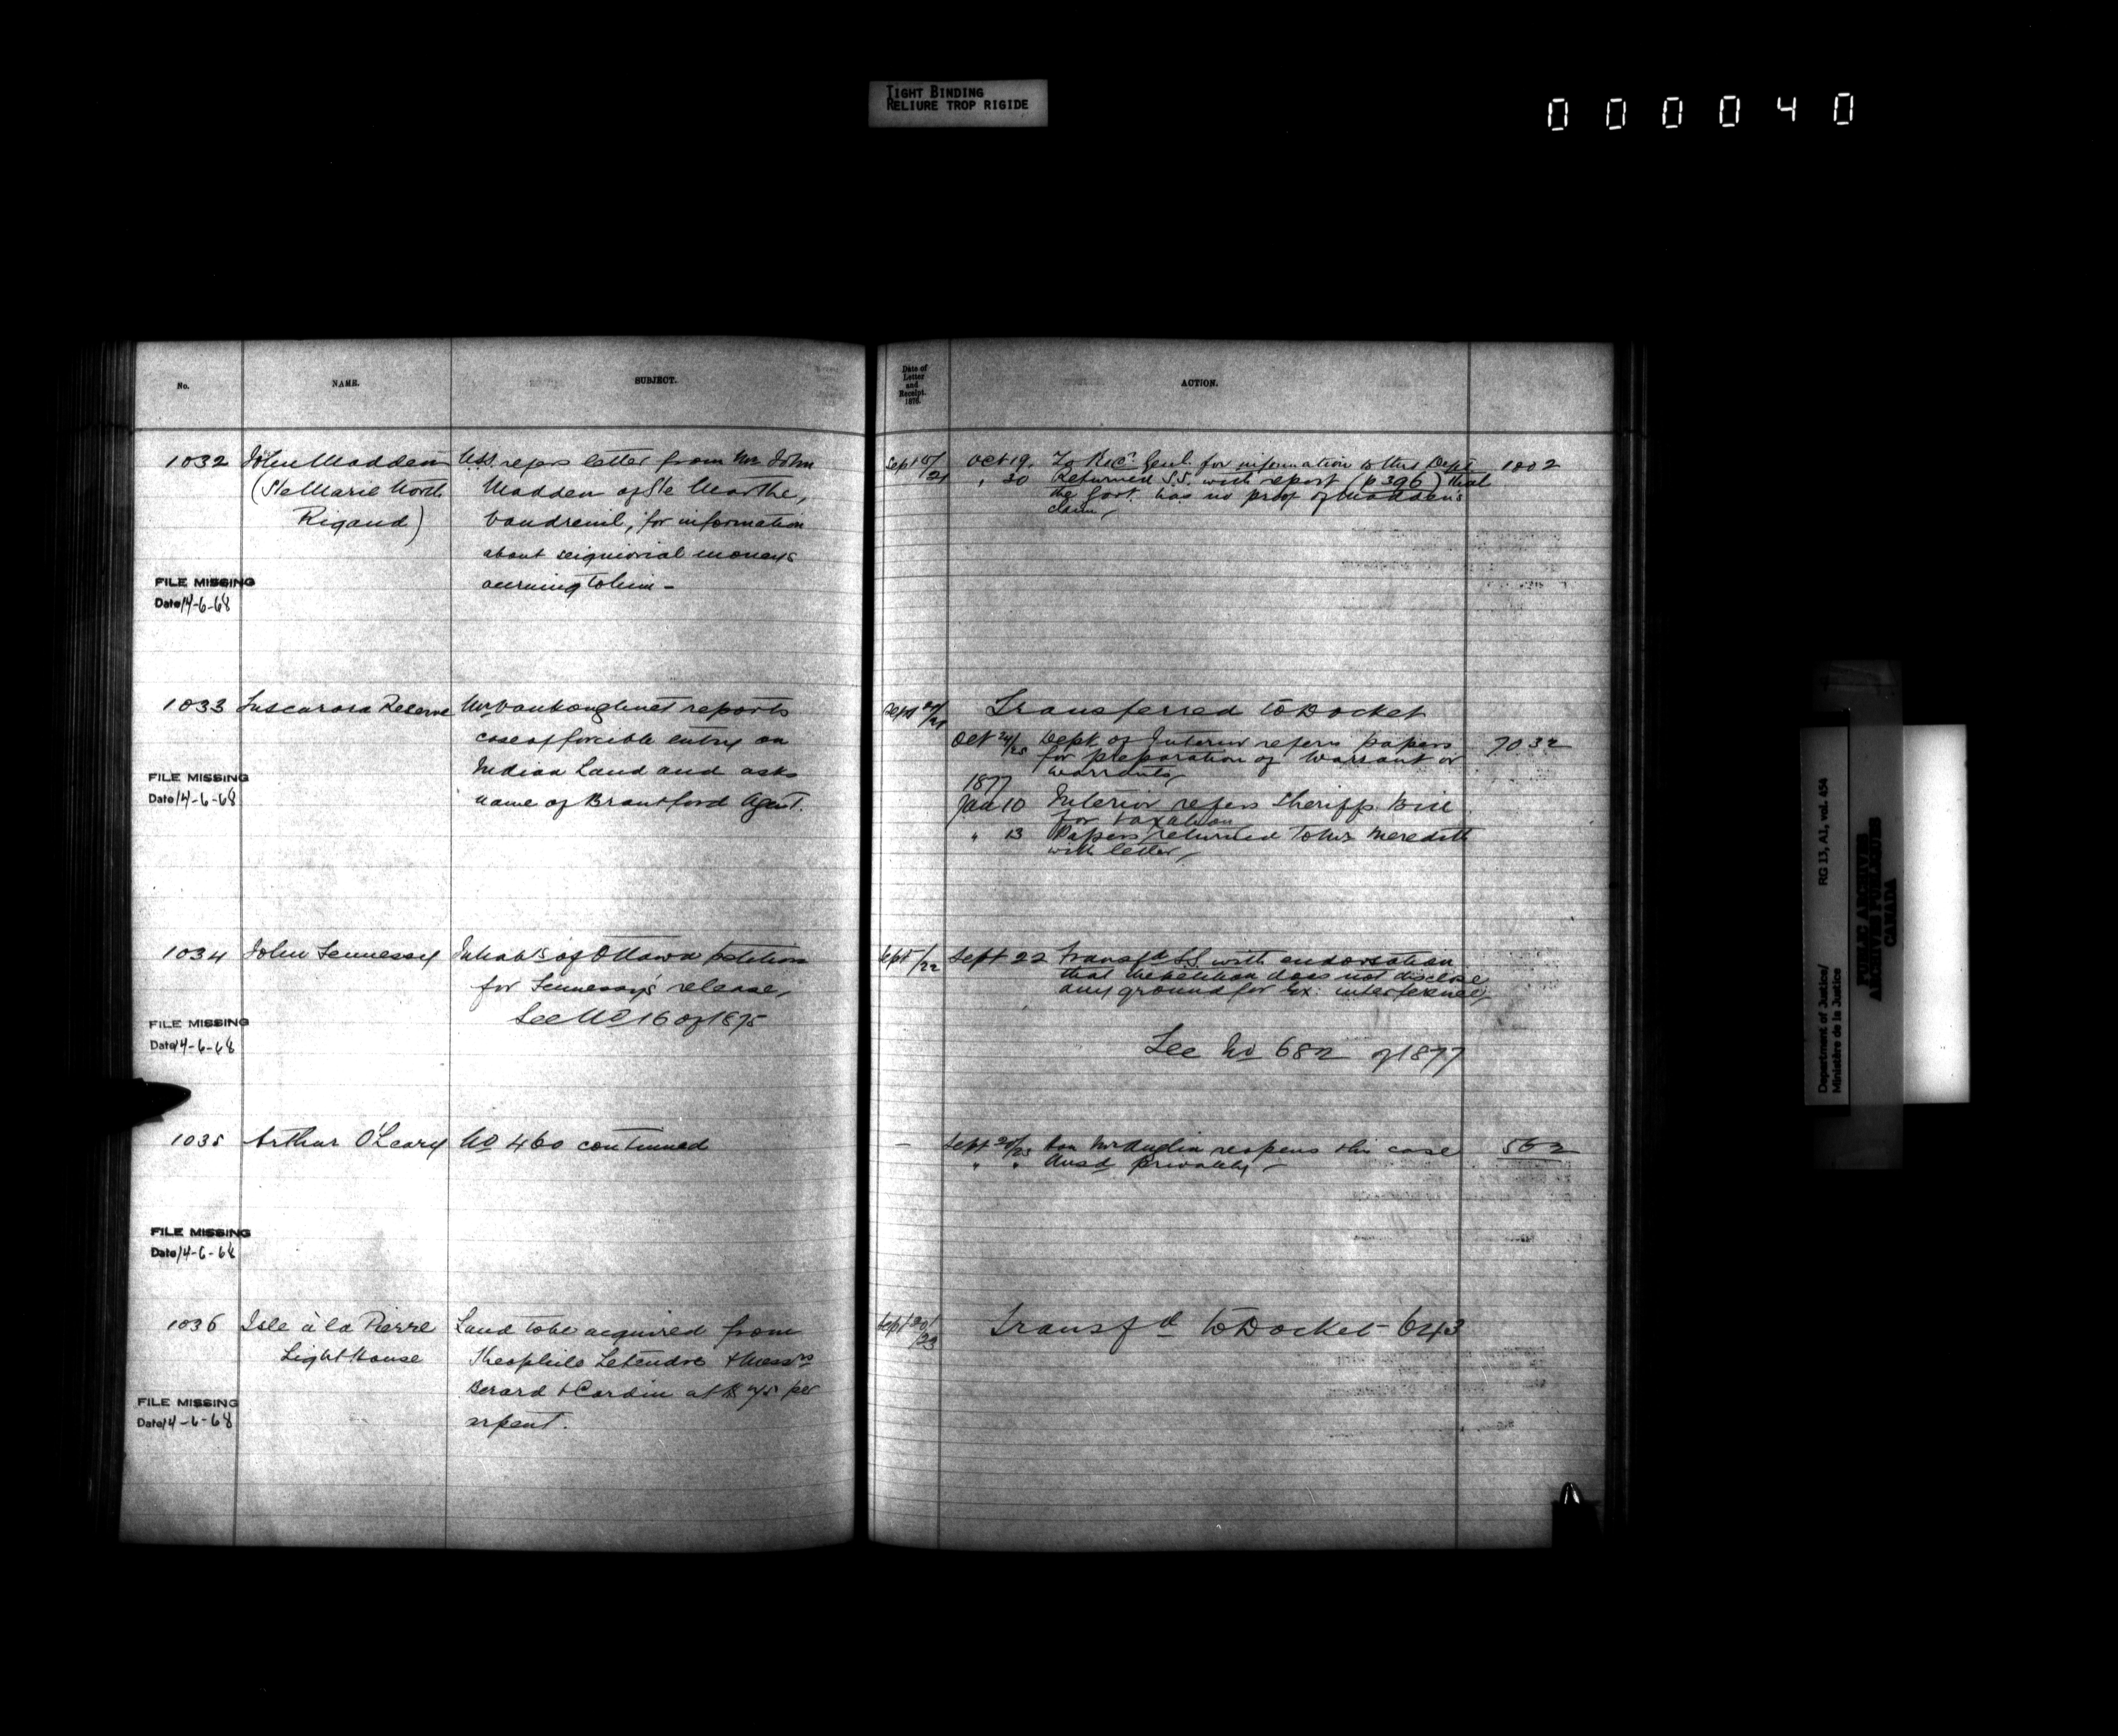 TIGHT BINDING
RELIURE TROP RIGIDE
000040
No.
NAME.
SUBJECT.
Date of
Letter
and
Receipt.
1876.
ACTION.
1032 John Madden
(Ste Marie North
Rigaud)
U.S.S. refers letter from Mr John
Madden of Ste Marthe,
Vaudreuil, for information
about seigniorial moneys
accruing to him -
FILE MISSING
Date 14-6-68
Sept 15/21
Oct 19. To Recr Genl. for information to this Dept. 1002
" 30 Returned S.S. with report (p 396) that
the Govt. has no proof of Madden's
claim
1033 Tuscarora Reserve
Mr Vankoughnet reports
case of forcible entry on
Indian Land and asks
name of Brantford Agent.
FILE MISSING
Date 14-6-68
Sept 20/21
Transferred to Docket
Oct 24/25 Dept of Interior refers papers 7032
for preparation of Warrant or
warrants
1877
Jan 10 Interior refers Sheriffs Bill
for taxation
" 13 Papers returned to Mr Meredith
with letter
1034 John Hennessy
Inhabts of Ottawa petition
for Hennessy's release,
See No 16 of 1875
FILE MISSING
Date 14-6-68
Sept /22
Sept 22 Transfd S.S. with endorsation
that the petition does not disclose
any ground for Ex: interference
See No 682 of 1877
1035 Arthur O'Leary
No 460 continued
-
Sept 20/23 Hon Mr Anglin reopens this case 562
" " Ansd privately -
FILE MISSING
Date 14-6-68
1036 Isle à la Pierre
Light House
Land to be acquired from
Theophile Letendre & Messrs
Berard & Cardin at per
arpent.
FILE MISSING
Date 14-6-68
Sept 20/23
Transfd to Docket - 643
Department of Justice/
Ministère de la Justice
RG 13, A1, vol. 454
PUBLIC ARCHIVES
ARCHIVES PUBLIQUES
CANADA